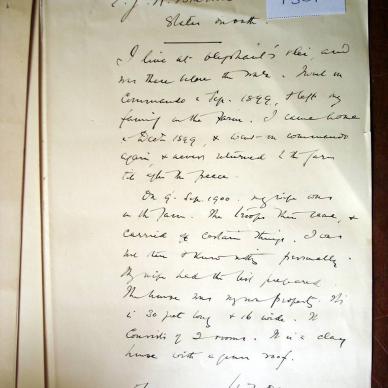 States on oath.
I live at Olephant's Vlei, and
was there before the war. I went on
Commando in Sep. 1899, & left my
family on the farm. I came home
in Decr 1899, & went on commando
again, & never returned to the farm
till after the peace.
On 9 Sep. 1900 my wife was
on the farm. The troops then came, &
carried off certain things. I was
not there & know nothing personally.
My wife had the list prepared.
The house was my own property. It
is 30 feet long & 16 wide. It
consists of 2 rooms. It is a clay
house with a grass roof.